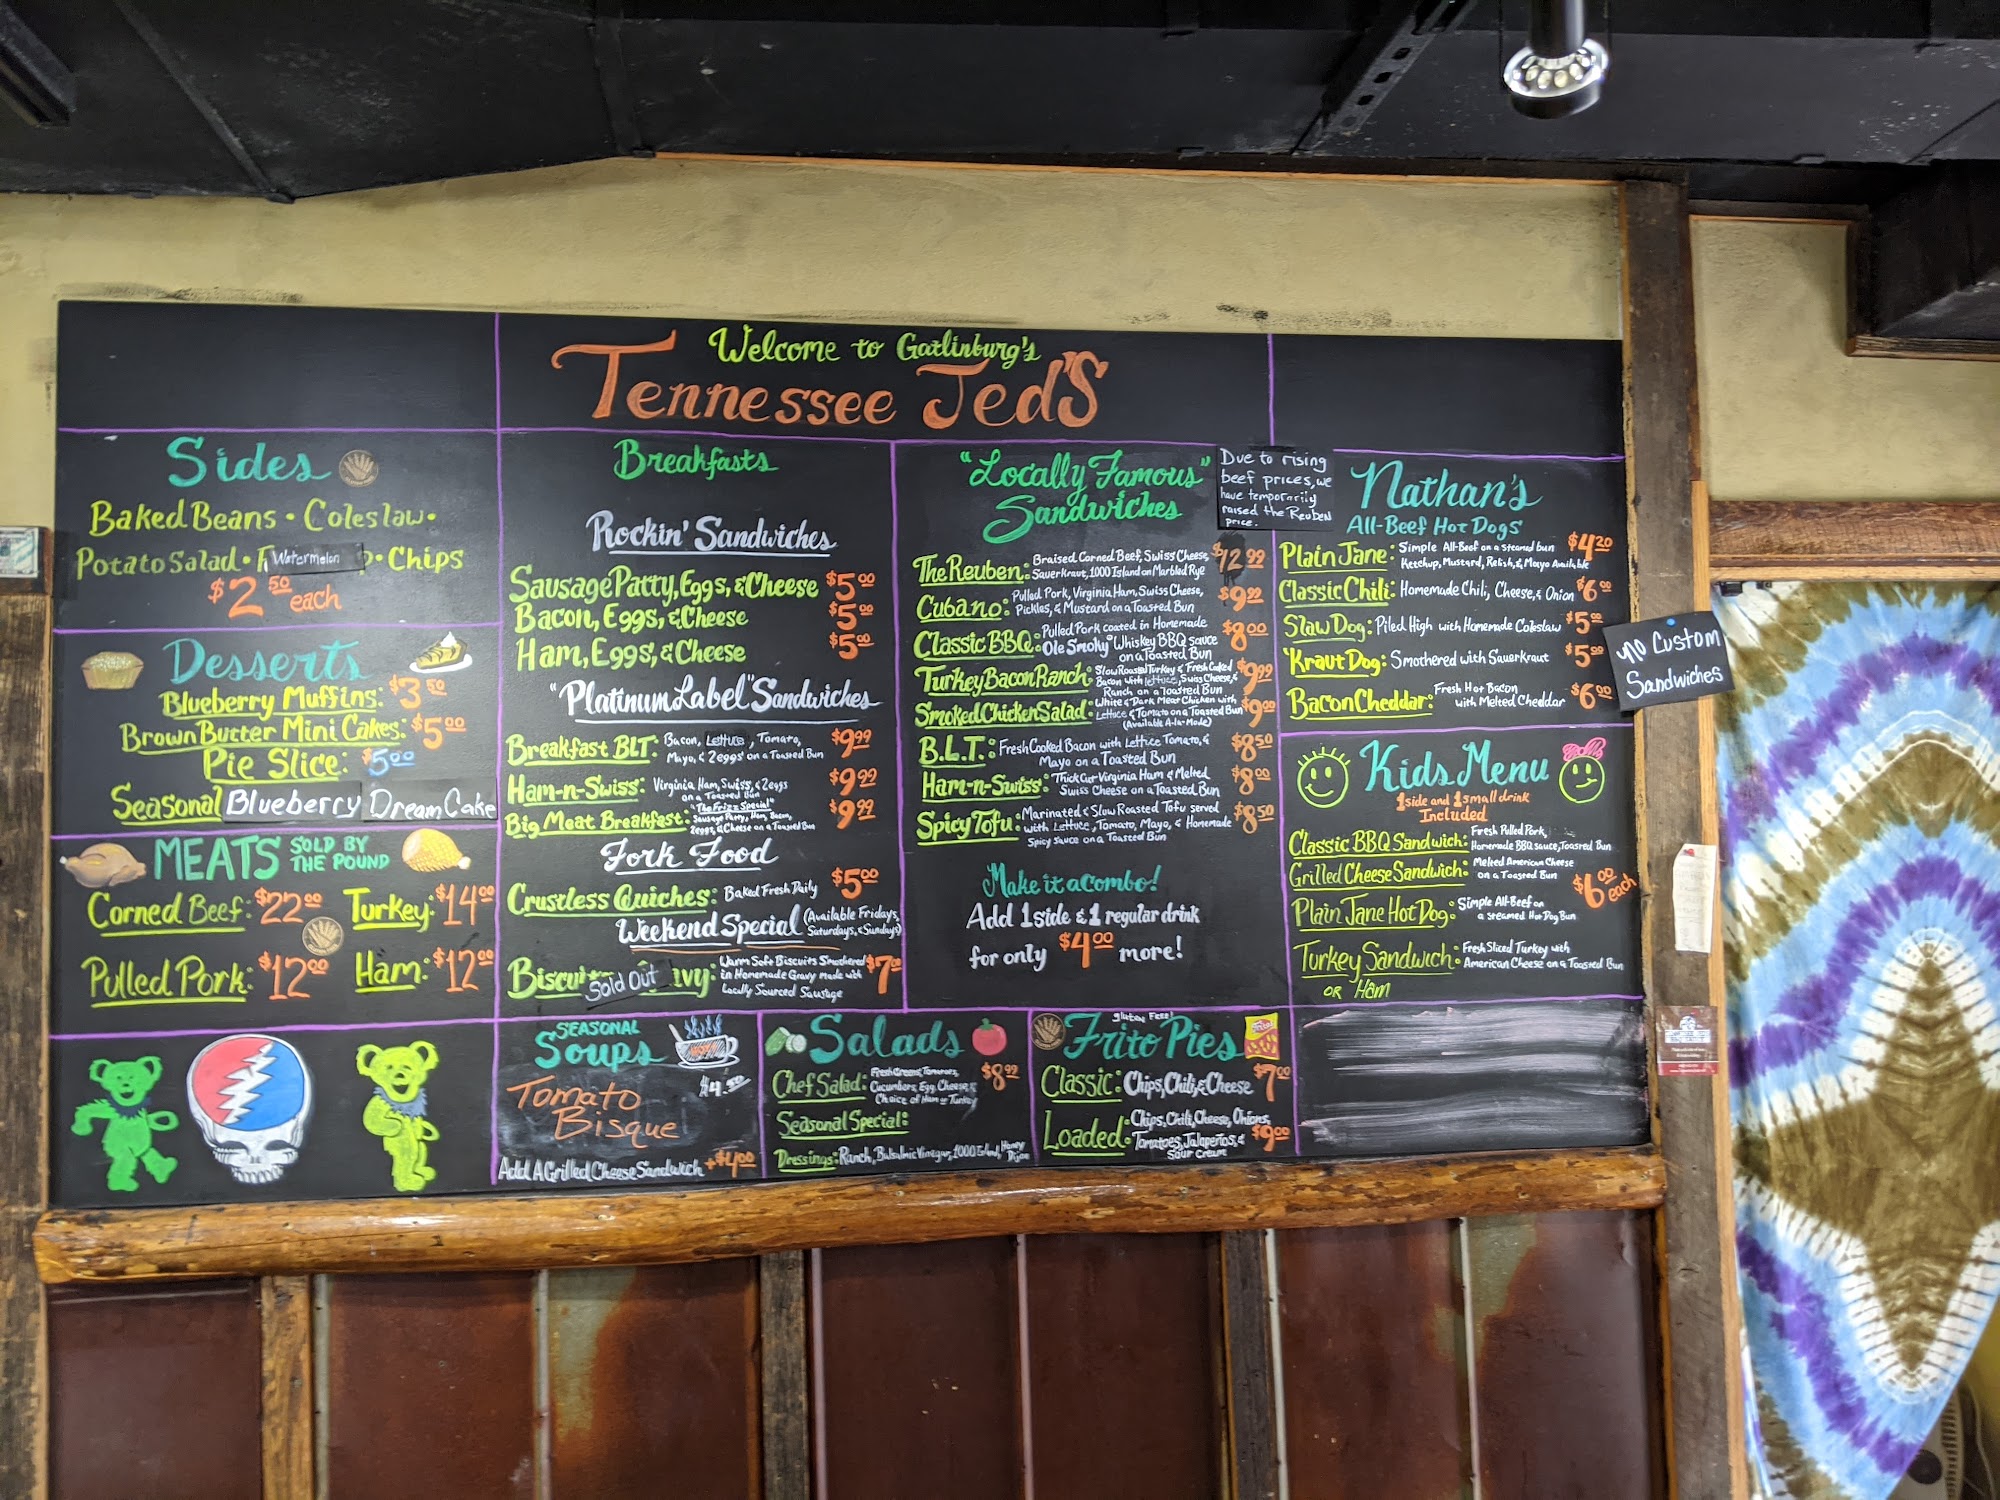 Welcome to Gatlinburg's
Tennessee Jed'S
Sides
Baked Beans • Coleslaw •
Potato Salad • Watermelon • Chips
$2 50 each
Desserts
Blueberry Muffins: $3 50
Brown Butter Mini Cakes: $5 00
Pie Slice: $5 00
Seasonal Blueberry Dream Cake
MEATS SOLD BY
THE POUND
Corned Beef: $22 00 Turkey: $14 00
Pulled Pork: $12 00 Ham: $12 00
Breakfasts
Rockin' Sandwiches
Sausage Patty, Eggs, & Cheese $5 00
Bacon, Eggs, & Cheese $5 00
Ham, Eggs, & Cheese $5 00
"Platinum Label" Sandwiches
Breakfast BLT: Bacon, Lettuce, Tomato, $9 99
Mayo, & 2 eggs on a Toasted Bun
Ham-n-Swiss: Virginia Ham, Swiss, & 2 eggs $9 99
on a Toasted Bun
"The Frizz Special"
Big Meat Breakfast: Sausage Patty, Ham, Bacon, $9 99
2 eggs, & Cheese on a Toasted Bun
Fork Food
Crustless Quiches: Baked Fresh Daily $5 00
Weekend Special (Available Fridays,
Saturdays, & Sundays)
Sold Out
Warm Soft Biscuits Smothered $7 00
in Homemade Gravy made with
Locally Sourced Sausage
"Locally Famous"
Sandwiches
Due to rising
beef prices, we
have temporarily
raised the Reuben
price.
The Reuben: Braised Corned Beef, Swiss Cheese, $12 99
Sauerkraut, 1000 Island on Marbled Rye
Cubano: Pulled Pork, Virginia Ham, Swiss Cheese, $9 99
Pickles, & Mustard on a Toasted Bun
Classic BBQ: Pulled Pork coated in Homemade $8 00
"Ole Smoky" Whiskey BBQ sauce
on a Toasted Bun
Turkey Bacon Ranch: Slow Roasted Turkey & Fresh Cooked $9 99
Bacon with lettuce, Swiss Cheese, &
Ranch on a Toasted Bun
Smoked Chicken Salad: White & Dark Meat Chicken with $9 00
Lettuce & Tomato on a Toasted Bun
(Available A-la-Mode)
B.L.T.: Fresh Cooked Bacon with Lettice Tomato, & $8 50
Mayo on a Toasted Bun
Ham-n-Swiss: Thick Cut Virginia Ham & Melted $8 00
Swiss Cheese on a Toasted Bun
Spicy Tofu: Marinated & Slow Roasted Tofu served $8 50
with Lettuce, Tomato, Mayo, & Homemade
Spicy Sauce on a Toasted Bun
Make it a Combo!
Add 1 side & 1 regular drink
for only $4 00 more!
Nathan's
All-Beef Hot Dogs
Plain Jane: Simple All-Beef on a steamed bun $4 20
Ketchup, Mustard, Relish, & Mayo Available
Classic Chili: Homemade Chili, Cheese, & Onion $6 00
Slaw Dog: Piled High with Homemade Coleslaw $5 00
'Kraut Dog: Smothered with Sauerkraut $5 00
Bacon Cheddar: Fresh Hot Bacon $6 00
with Melted Cheddar
No Custom
Sandwiches
Kids Menu
1 side and 1 small drink
Included
Classic BBQ Sandwich: Fresh Pulled Pork,
Homemade BBQ sauce, Toasted Bun
Grilled Cheese Sandwich: Melted American Cheese
on a Toasted Bun
$6 00 each
Plain Jane Hot Dog: Simple All-Beef on
a steamed Hot Dog Bun
Turkey Sandwich: Fresh Sliced Turkey with
American Cheese on a Toasted Bun
OR Ham
SEASONAL
Soups
$4.50
Tomato
Bisque
Add A Grilled Cheese Sandwich +$4 00
Salads
Chef Salad: Fresh Greens, Tomatoes, $8 99
Cucumbers, Egg, Cheese, &
Choice of Ham or Turkey
Seasonal Special:
Dressings: Ranch, Balsalmic Vinegar, 1000 Island, Honey
Dijon
Gluten Free!
Frito Pies
Fritos
Classic: Chips, Chili, & Cheese $7 00
Loaded: Chips, Chili, Cheese, Onions, $9 00
Tomatoes, Jalapeños, &
Sour Cream